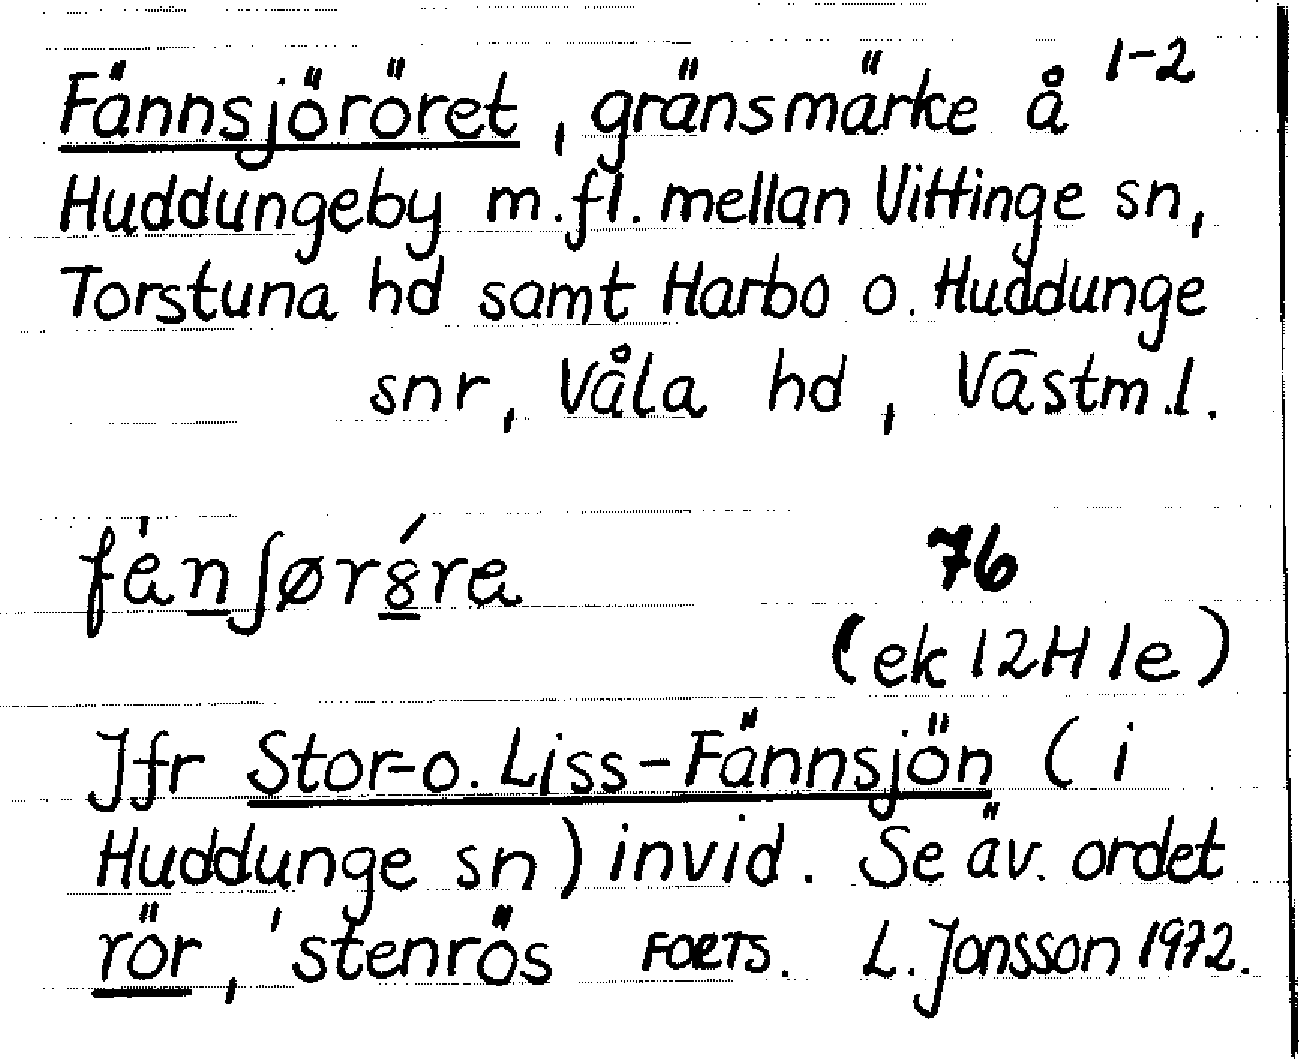 Fännsjöröret, gränsmärke å 1-2
Huddungeby m.fl. mellan Vittinge sn,
Torstuna hd samt Harbo o. Huddunge
snr, Våla hd, Västm.l.
76
(ek 12H 1e)
Jfr Stor- o. Liss-Fännsjön (i
Huddunge sn) invid. Se äv. ordet
rör, 'stenrös FORTS. L. Jonsson 1972.